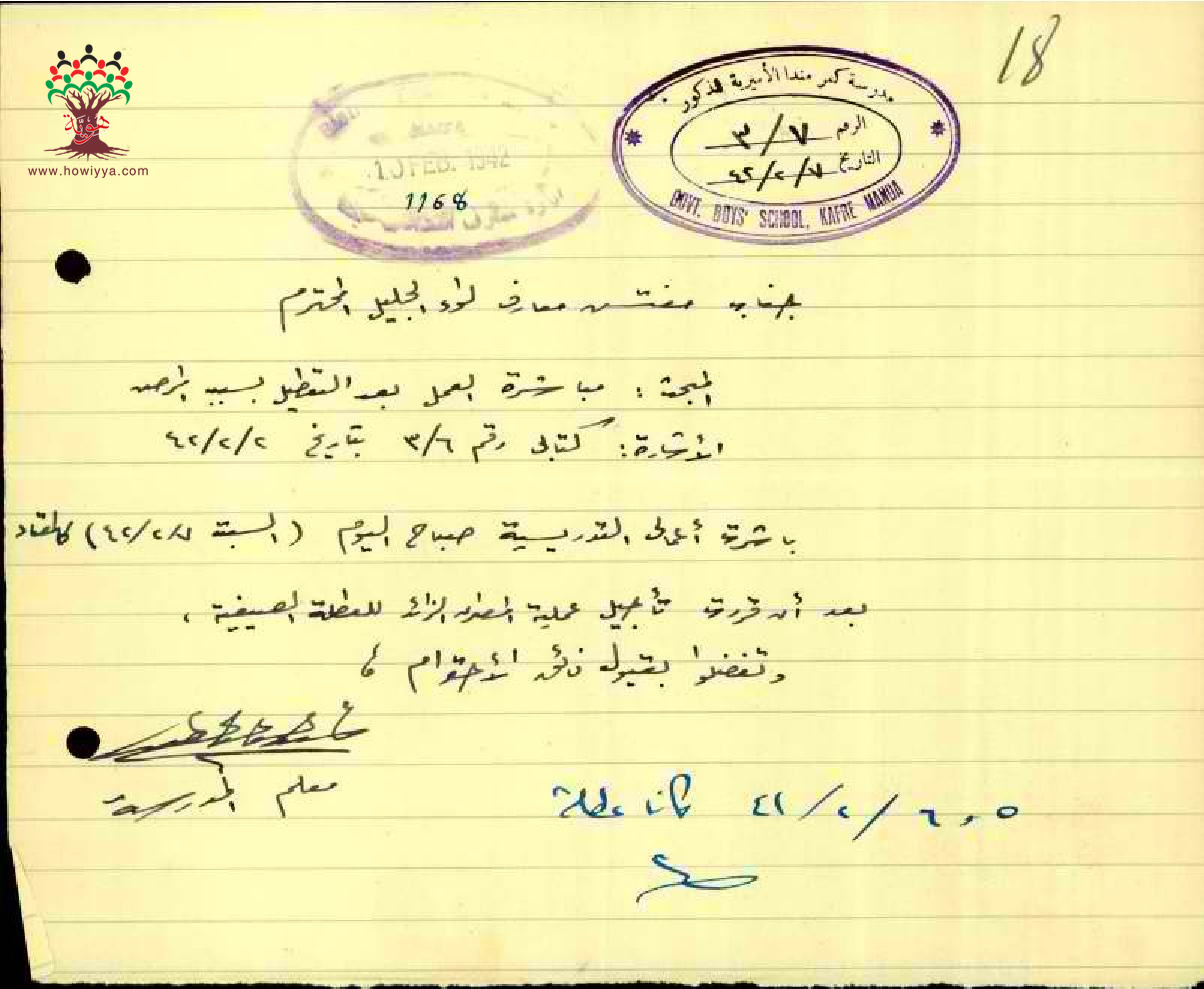 18
هوية
www.howiyya.com
HAIFA
10 FEB. 1942
1168
مدرسة كفر مندا الأميرية للذكور
الرقم ٣/٧
التاريخ ٤٢/٢/٧
GOVT. BOYS' SCHOOL, KAFRE MANDA
جناب مفتش معارف لواء الجليل المحترم
المبحث : مباشرة العمل بعد التعطيل بسبب المرض
الأشارة : كتابي رقم ٣/٦ بتاريخ ٤٢/٢/٢
باشرت أعمالي التدريسية صباح اليوم (السبت ٤٢/٢/٧) كالمعتاد
بعد أن قررت تأجيل عملية الزائد للعطلة الصيفية ،
وتفضلوا بقبول فائق الأحترام ،
معلم المدرسة
٥ و ٦ / ٢ / ٤٢ كانا عطلة